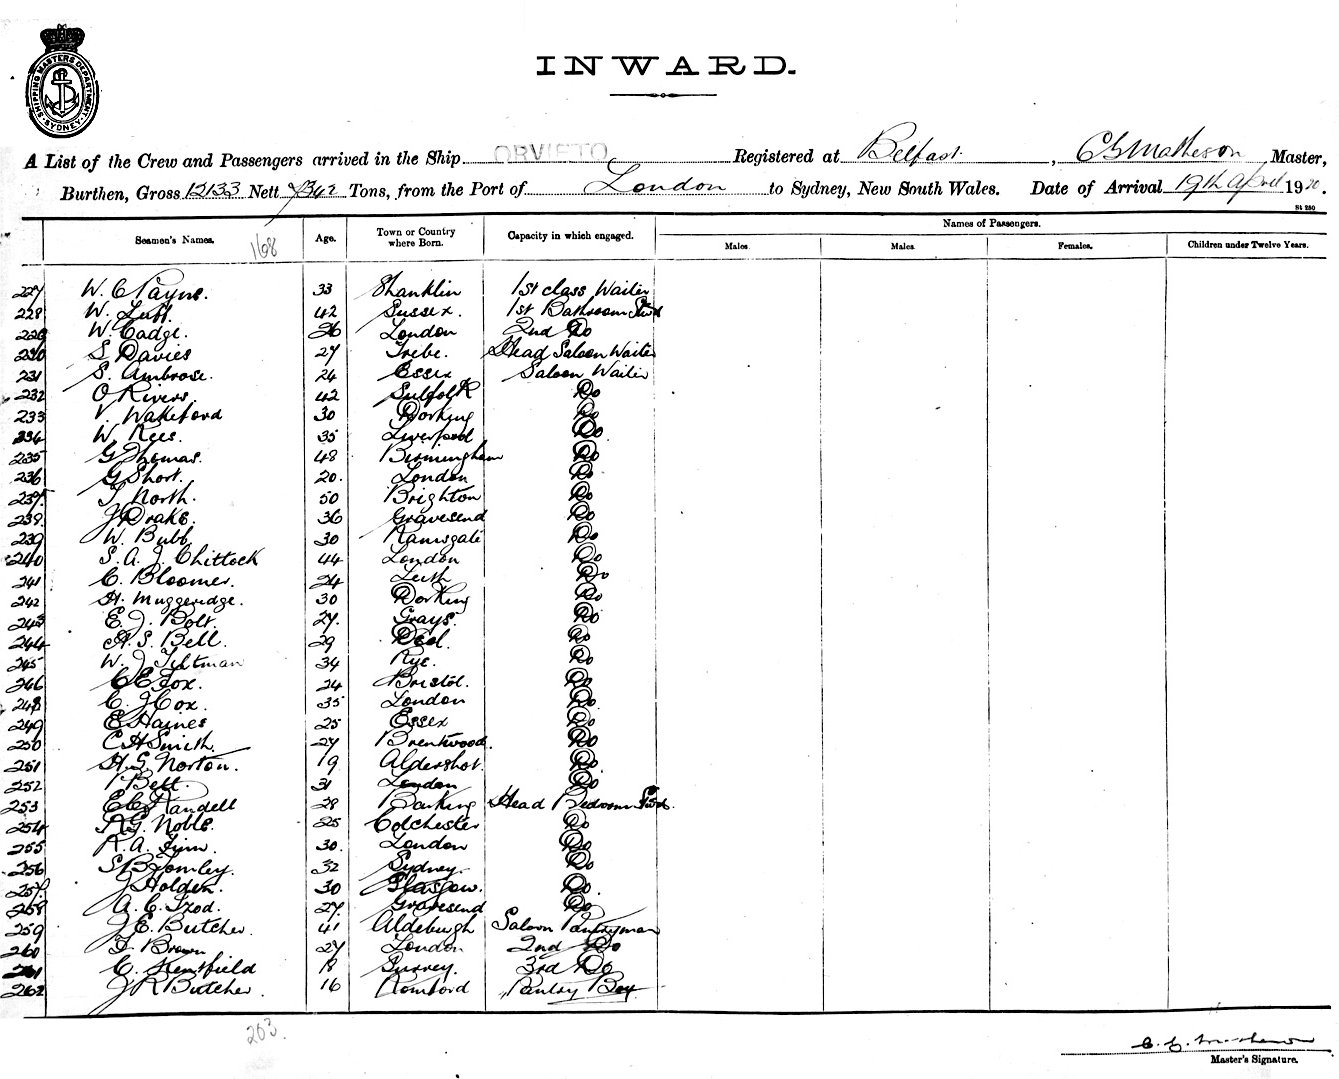 SHIPPING MASTERS DEPARTMENT SYDNEY
INWARD.
A List of the Crew and Passengers arrived in the Ship ORVIETO Registered at Belfast, C G Matheson Master,
Burthen, Gross 12133 Nett 7342 Tons, from the Port of London to Sydney, New South Wales. Date of Arrival 19th April 1920.
St 250
Seamen's Names. 168 Age. Town or Country where Born. Capacity in which engaged. Names of Passengers.
Males. Males. Females. Children under Twelve Years.
227 W. C Payne. 33 Shanklin 1st class Waiter
228 W. Luff. 42 Sussex. 1st Bathroom Stwd
229 W. Cadge. 26 London 2nd Do
230 S Davies 27 Head Saloon Waiter
231 S. Ambrose. 24 Essex Saloon Waiter
232 O Rivers. 42 Suffolk Do
233 V. Wakeford 30 Dorking Do
234 W. Rees. 35 Liverpool Do
235 G Thomas. 48 Birmingham Do
236 G Short. 20. London Do
237 J North. 50 Brighton Do
238. J Drake. 36 Gravesend Do
239 W. Bubb 30 Ramsgate Do
240 S. A. J. Chittock 44 London Do
241 C. Bloomer. 24 Leith Do
242 H. Muggeridge. 30 Dorking Do
243 E. J. Bolt. 27. Grays. Do
244 A. S. Bell. 29 Deal. Do
245 W. J Tiltman 34 Rye. Do
246 C E Fox. 24 Bristol. Do
248 C. J Cox. 35 London Do
249 E Haines 25 Essex Do
250 C H Smith. 27 Brentwood. Do
251 H. G. Norton. 19 Aldershot. Do
252 Bell. 31 London Do
253 Randell 28 Barking Head Bedroom Stwd.
254 A G. Noble. 25 Colchester Do
255 R. A. Finn. 30. London Do
256 S B Tomley. 32 Sydney. Do
257. J Holden. 30 Glasgow. Do.
258 A. C. Izod. 27. Gravesend Do
259 J E. Butcher. 41 Aldeburgh Saloon Pantryman
260 F. Brown 27 London 2nd Do
261 C. Kentfield 18 Surrey. 3rd Do
262 J R Butcher. 16 Romford Pantry Boy
263.
C. G. Matheson
Master's Signature.